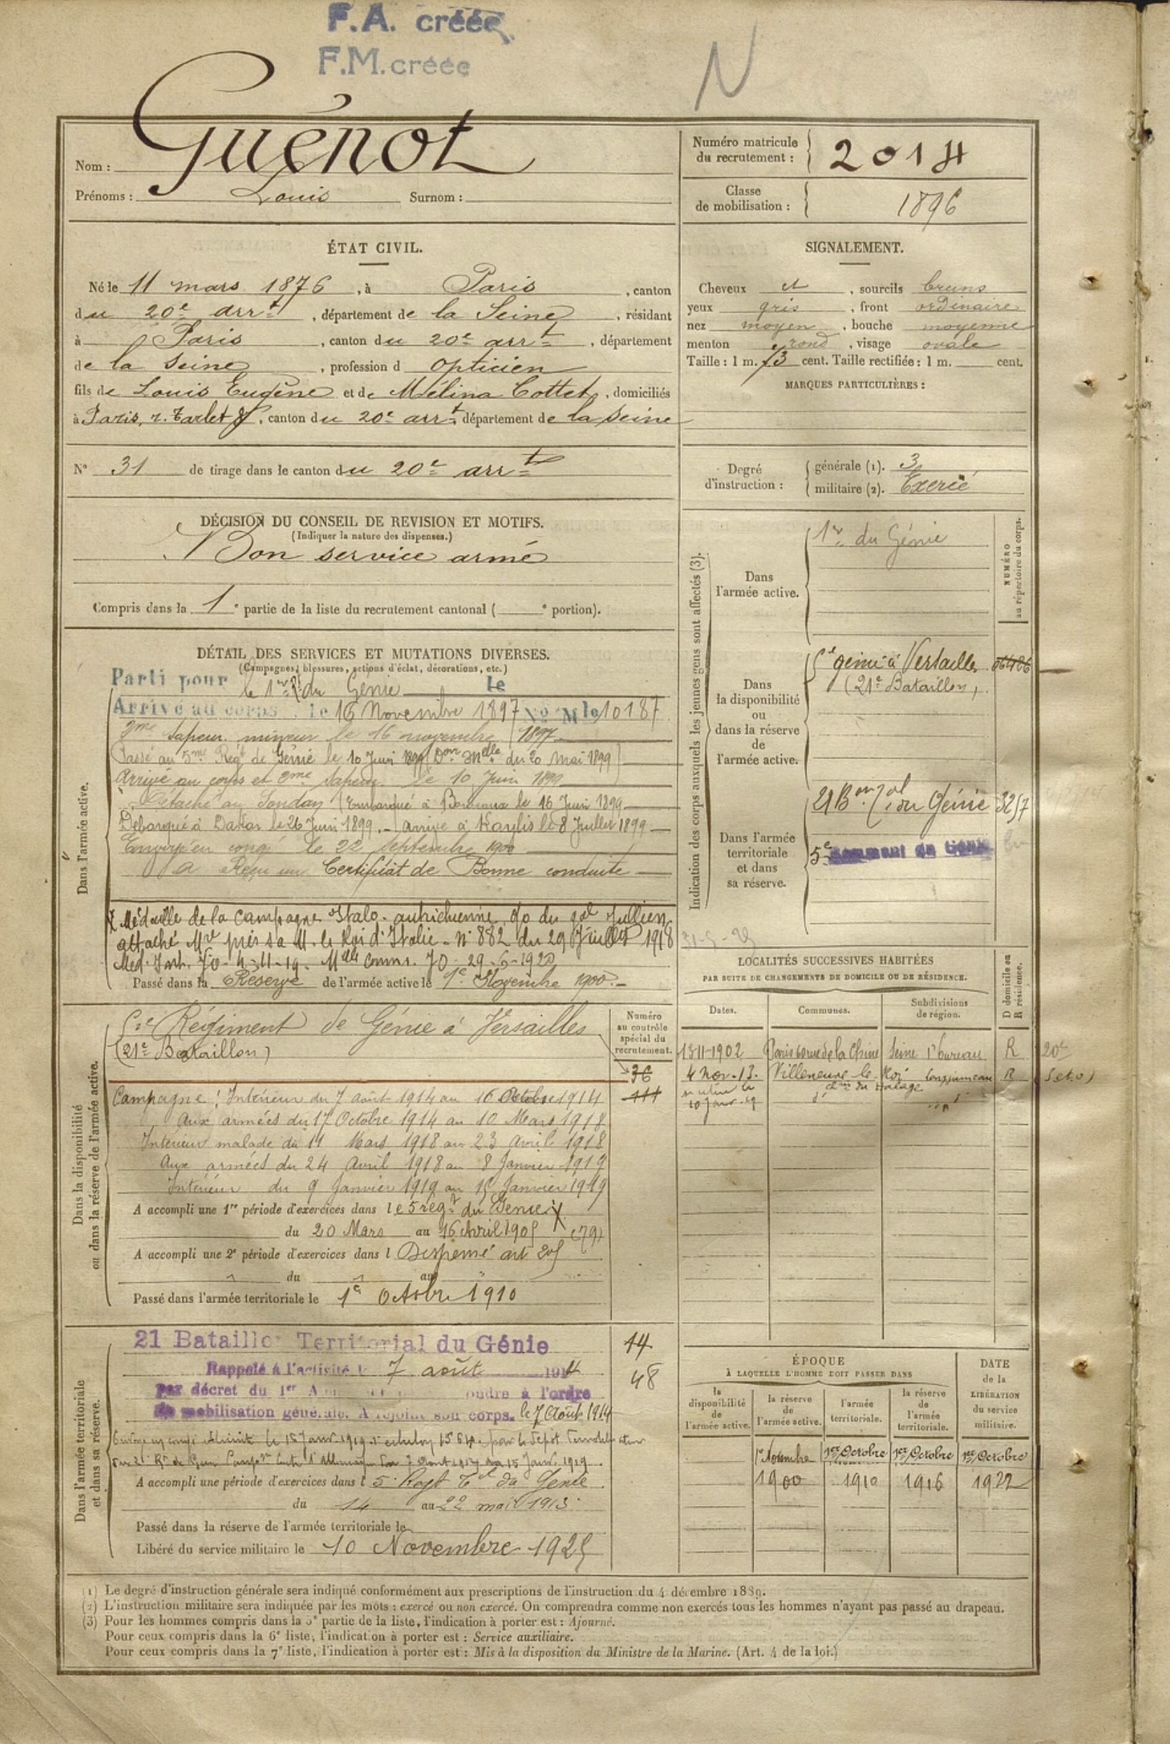 F.A. créée
F.M. créée
N
Nom : Guénot
Prénoms : Louis Surnom :
Numéro matricule du recrutement : 2014
Classe de mobilisation : 1896
ÉTAT CIVIL.
Né le 11 mars 1876, à Paris, canton
du 20e arrt, département de la Seine, résidant
à Paris, canton du 20e arrt, département
de la Seine, profession d opticien
fils de Louis Eugène et de Mélina Cottet, domiciliés
à Paris, r., canton du 20e arrt, département de la Seine
N° 31 de tirage dans le canton du 20e arrt
SIGNALEMENT.
Cheveux et, sourcils bruns
yeux gris, front ordinaire
nez moyen, bouche moyenne
menton rond, visage ovale
Taille : 1 m. 73 cent. Taille rectifiée : 1 m. cent.
MARQUES PARTICULIÈRES :
Degré d'instruction :
générale (1). 3
militaire (2). Exercé
DÉCISION DU CONSEIL DE REVISION ET MOTIFS.
(Indiquer la nature des dispenses.)
Bon service armé
Compris dans la 1e partie de la liste du recrutement cantonal ( e portion).
Indication des corps auxquels les jeunes gens sont affectés (3).
NUMÉRO au répertoire du corps.
Dans l'armée active.
1er du Génie
Dans la disponibilité ou dans la réserve de l'armée active.
5e génie à Versailles
(21e Bataillon)
Dans l'armée territoriale et dans sa réserve.
21 Bon Tal du Génie 3257
5e Régiment du Génie
DÉTAIL DES SERVICES ET MUTATIONS DIVERSES.
(Campagnes, blessures, actions d'éclat, décorations, etc.)
Dans l'armée active.
Parti pour le 1er Rt du Génie le
Arrivé au corps le 16 Novembre 1897 No Mle 10187
2me Sapeur mineur le 16 novembre 1897
Passé au 5me Régt de Génie le 10 Juin 1899 (Don Melle du 20 mai 1899)
Arrivé au corps et 2me sapeur le 10 Juin 1899
Détaché au Soudan (Embarqué à Bordeaux le 16 Juin 1899
Débarqué à Dakar le 26 Juin 1899. - arrivé à le 8 Juillet 1899
Envoyé en congé le 22 Septembre 1900
A Reçu un Certificat de Bonne conduite
X Médaille de la Campagne Italo-autrichienne, do du gal Jullien
attaché Mre près sa M. le Roi d'Italie - No 882 du 29 Juillet 1918
Passé dans la Réserve de l'armée active le 1er Novembre 1900
31-5-25
LOCALITÉS SUCCESSIVES HABITÉES
PAR SUITE DE CHANGEMENTS DE DOMICILE OU DE RÉSIDENCE.
Dates. Communes. Subdivisions de région. D domicile ou R résidence.
13-11-1902 Paris 60 rue de la Chine Seine 1er bureau R 20e
4 Nov. 13. Villeneuve le Roi Corp R (S et O)
Dans la disponibilité ou dans la réserve de l'armée active.
Numéro au contrôle spécial du recrutement.
5e Régiment de Génie à Versailles
(21e Bataillon)
36
111
Campagne : Intérieur du 7 août 1914 au 16 Octobre 1914
Aux armées du 17 Octobre 1914 au 10 Mars 1918
Intérieur malade du 11 Mars 1918 au 23 Avril 1918
Aux armées du 24 Avril 1918 au 8 Janvier 1919
Intérieur du 9 Janvier 1919 au 15 Janvier 1919
A accompli une 1re période d'exercices dans l e 5 regt du Génie X
du 20 Mars au 16 Avril 1905 (79)
A accompli une 2e période d'exercices dans l Dispensé art 205
du au
Passé dans l'armée territoriale le 1er Octobre 1910
Dans l'armée territoriale et dans sa réserve.
21 Bataillon Territorial du Génie
Rappelé à l'activité le 7 août 1914
par décret du 1er A oudre à l'ordre
de mobilisation générale. A rejoint son corps. le 7 Août 1914
14
48
A accompli une période d'exercices dans l 5e Regt Tal du Génie
du 14 au 22 mai 1913
Passé dans la réserve de l'armée territoriale le
Libéré du service militaire le 10 Novembre 1925
ÉPOQUE
À LAQUELLE L'HOMME DOIT PASSER DANS
DATE DE LA LIBÉRATION DU SERVICE MILITAIRE.
la disponibilité de l'armée active. la réserve de l'armée active. l'armée territoriale. la réserve de l'armée territoriale.
1er Novembre 1er Octobre 1er Octobre 1er Octobre
1900 1910 1916 1922
(1) Le degré d'instruction générale sera indiqué conformément aux prescriptions de l'instruction du 4 décembre 1889.
(2) L'instruction militaire sera indiquée par les mots : exercé ou non exercé. On comprendra comme non exercés tous les hommes n'ayant pas passé au drapeau.
(3) Pour les hommes compris dans la 5e partie de la liste, l'indication à porter est : Ajourné.
Pour ceux compris dans la 6e liste, l'indication à porter est : Service auxiliaire.
Pour ceux compris dans la 7e liste, l'indication à porter est : Mis à la disposition du Ministre de la Marine. (Art. 4 de la loi.)